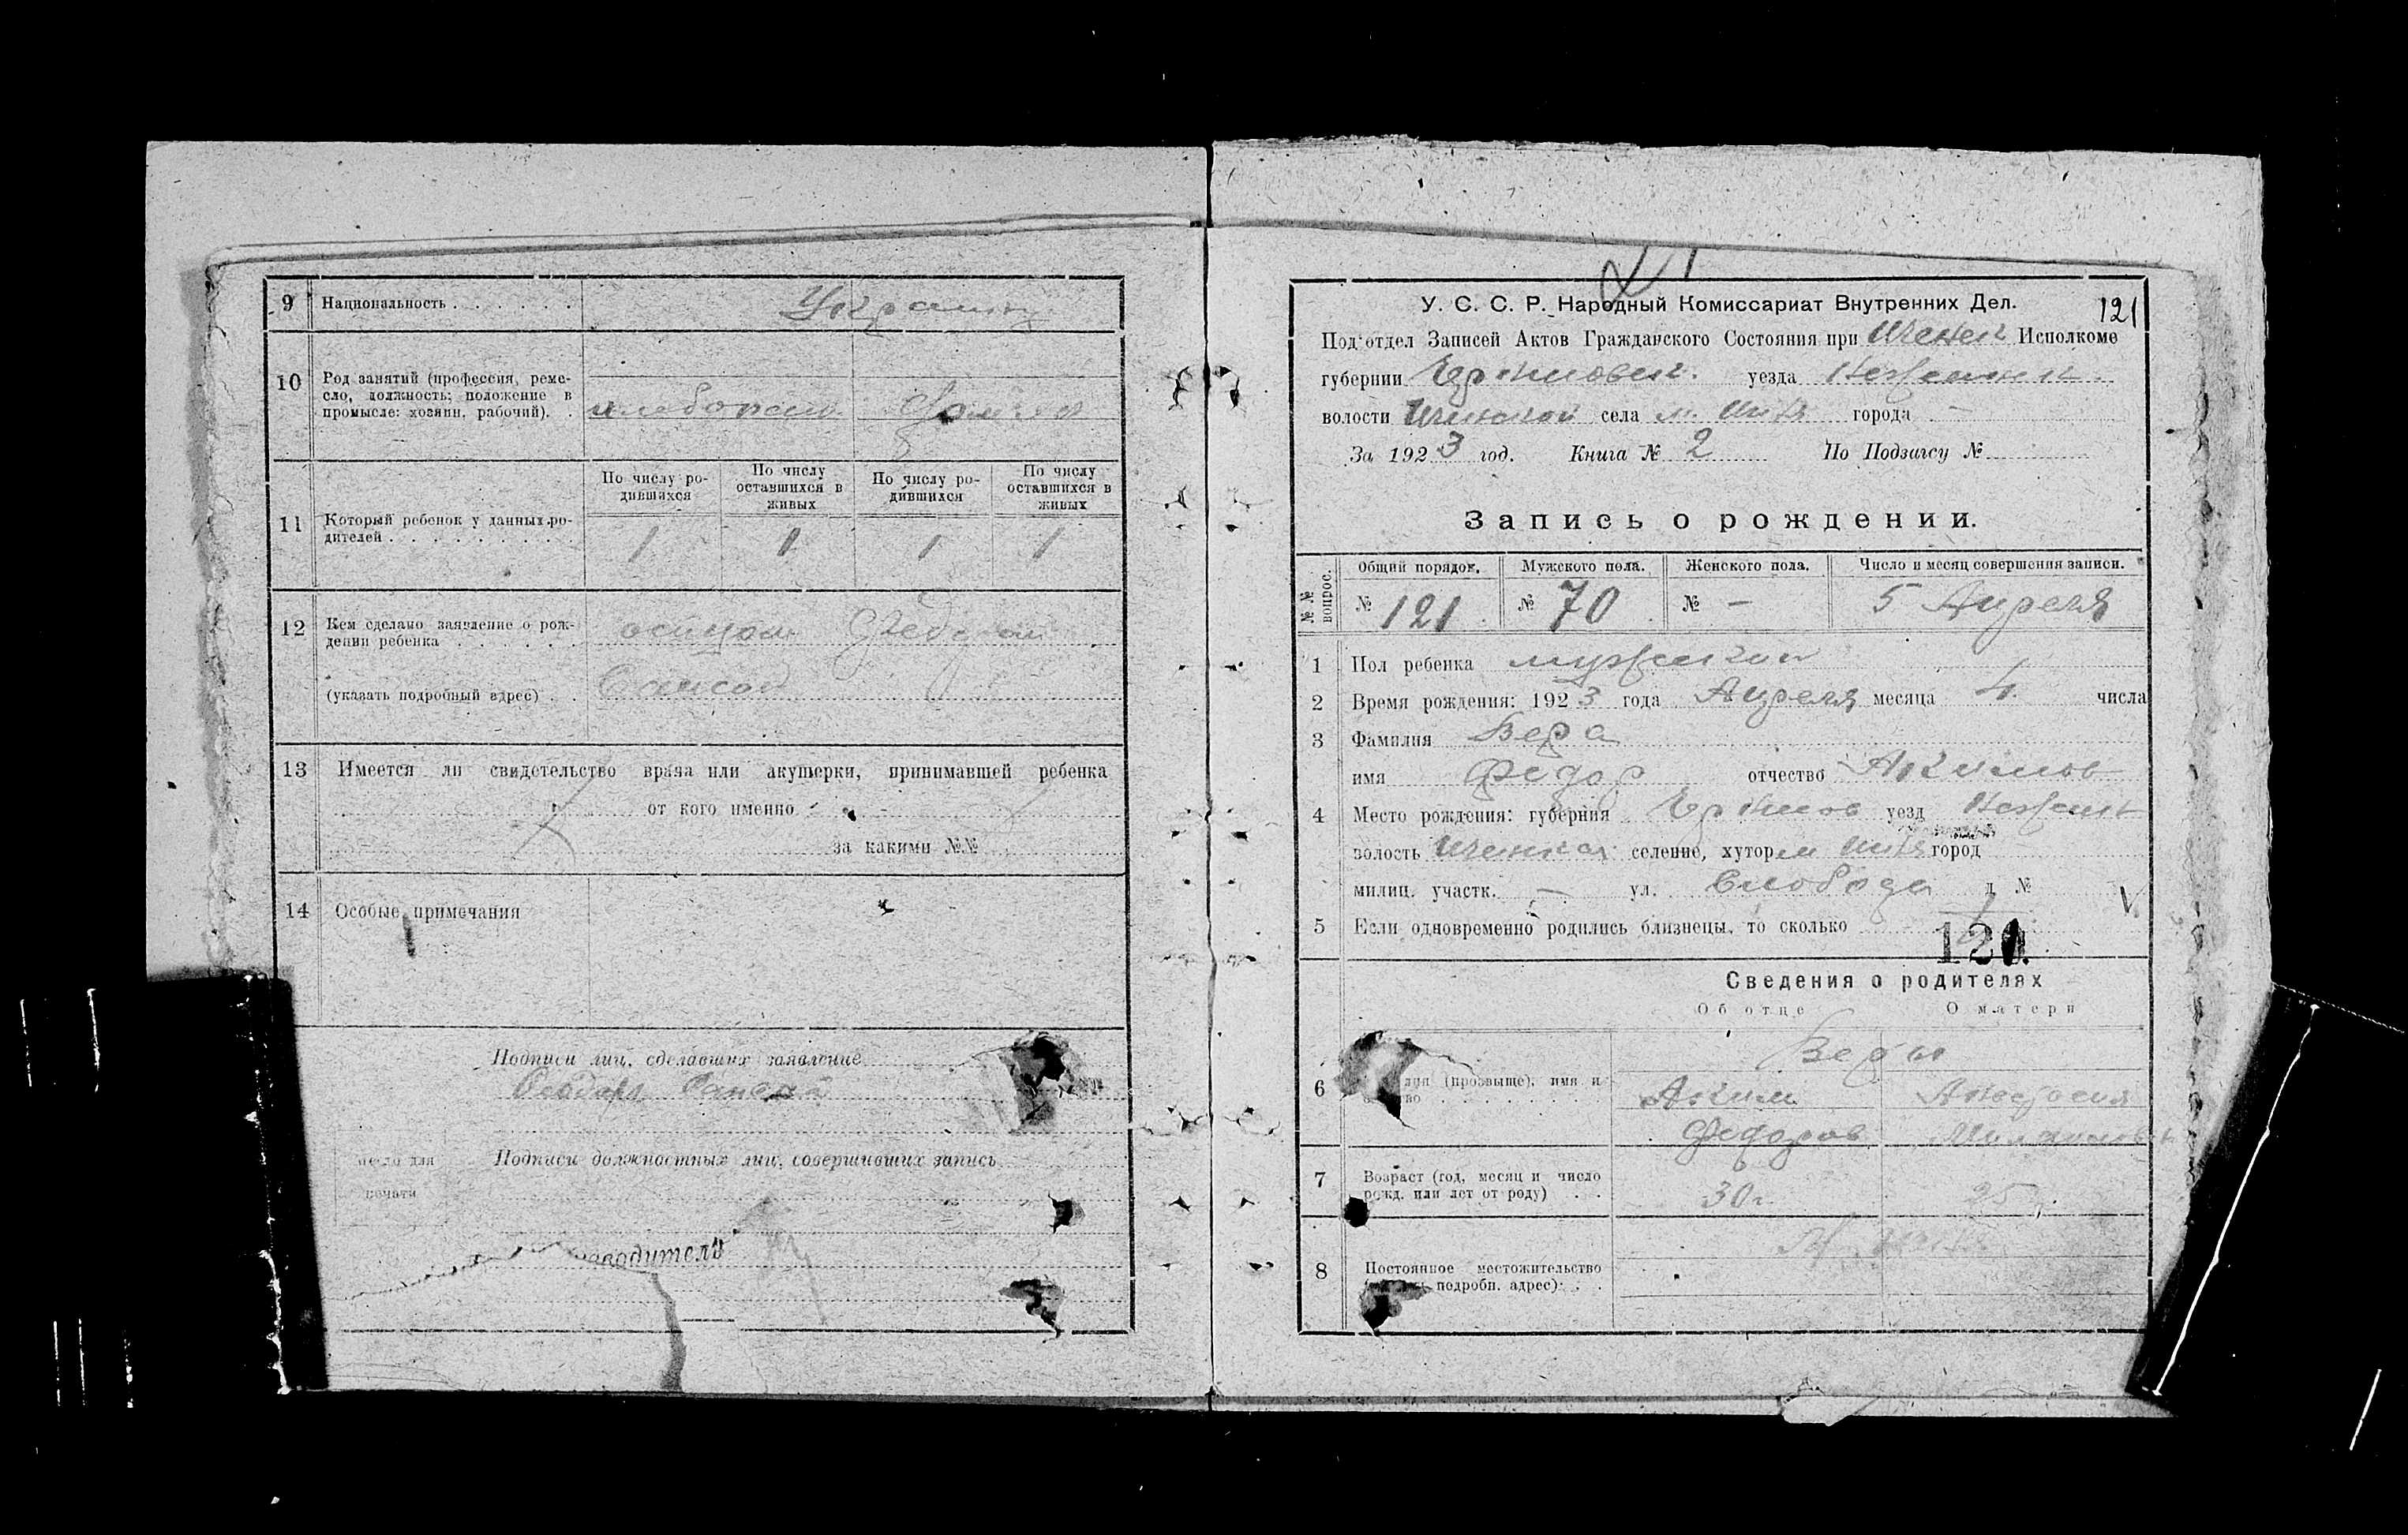 9 Национальность . . . . . . Украинц
10 Род занятий (профессия, реме-
сло, должность; положение в
промысле: хозяин, рабочий). .
хлебопаш
11 Который ребенок у данных ро-
дителей . . . . . . . . .
По числу ро-
дившихся
По числу
оставшихся в
живых
По числу ро-
дившихся
По числу
оставшихся в
живых
1 1 1 1
12 Кем сделано заявление о рож-
дении ребенка . . . . . .
(указать подробный адрес) . .
13 Имеется ли свидетельство врача или акушерки, принимавшей ребенка
от кого именно
за какими №№
14 Особые примечания
Подписи лиц, сделавших заявление
место для
печати
Подписи должностных лиц, совершивших запись
121
У. С. С. Р. Народный Комиссариат Внутренних Дел.
Под'отдел Записей Актов Гражданского Состояния при Иченск Исполкоме
губернии Черниговск. уезда Нежинск
волости Ичнской села м. Ичня города —
За 1923 год. Книга № 2 По Подзагсу №
Запись о рождении.
№№ вопрос.
Общий порядок. Мужского пола. Женского пола. Число и месяц совершения записи.
№ 121 № 70 № — 5 Апреля
1 Пол ребенка мужской
2 Время рождения: 1923 года Апреля месяца 4 числа
3 Фамилия Бера
имя Федор отчество Акимов
4 Место рождения: губерния Чернигов уезд Нежинск
волость Иченская селение, хутор м Ичня город
милиц. участк. — ул. Слобода д №
5 Если одновременно родились близнецы, то сколько
121
Сведения о родителях
Об отце О матери
6 (прозвище), имя и
Беры
Аким
Федоров
7 Возраст (год, месяц и число
рожд. или лет от роду) . .
30 г. 25
8 Постоянное местожительство
подробн. адрес): . .
м. Ичня